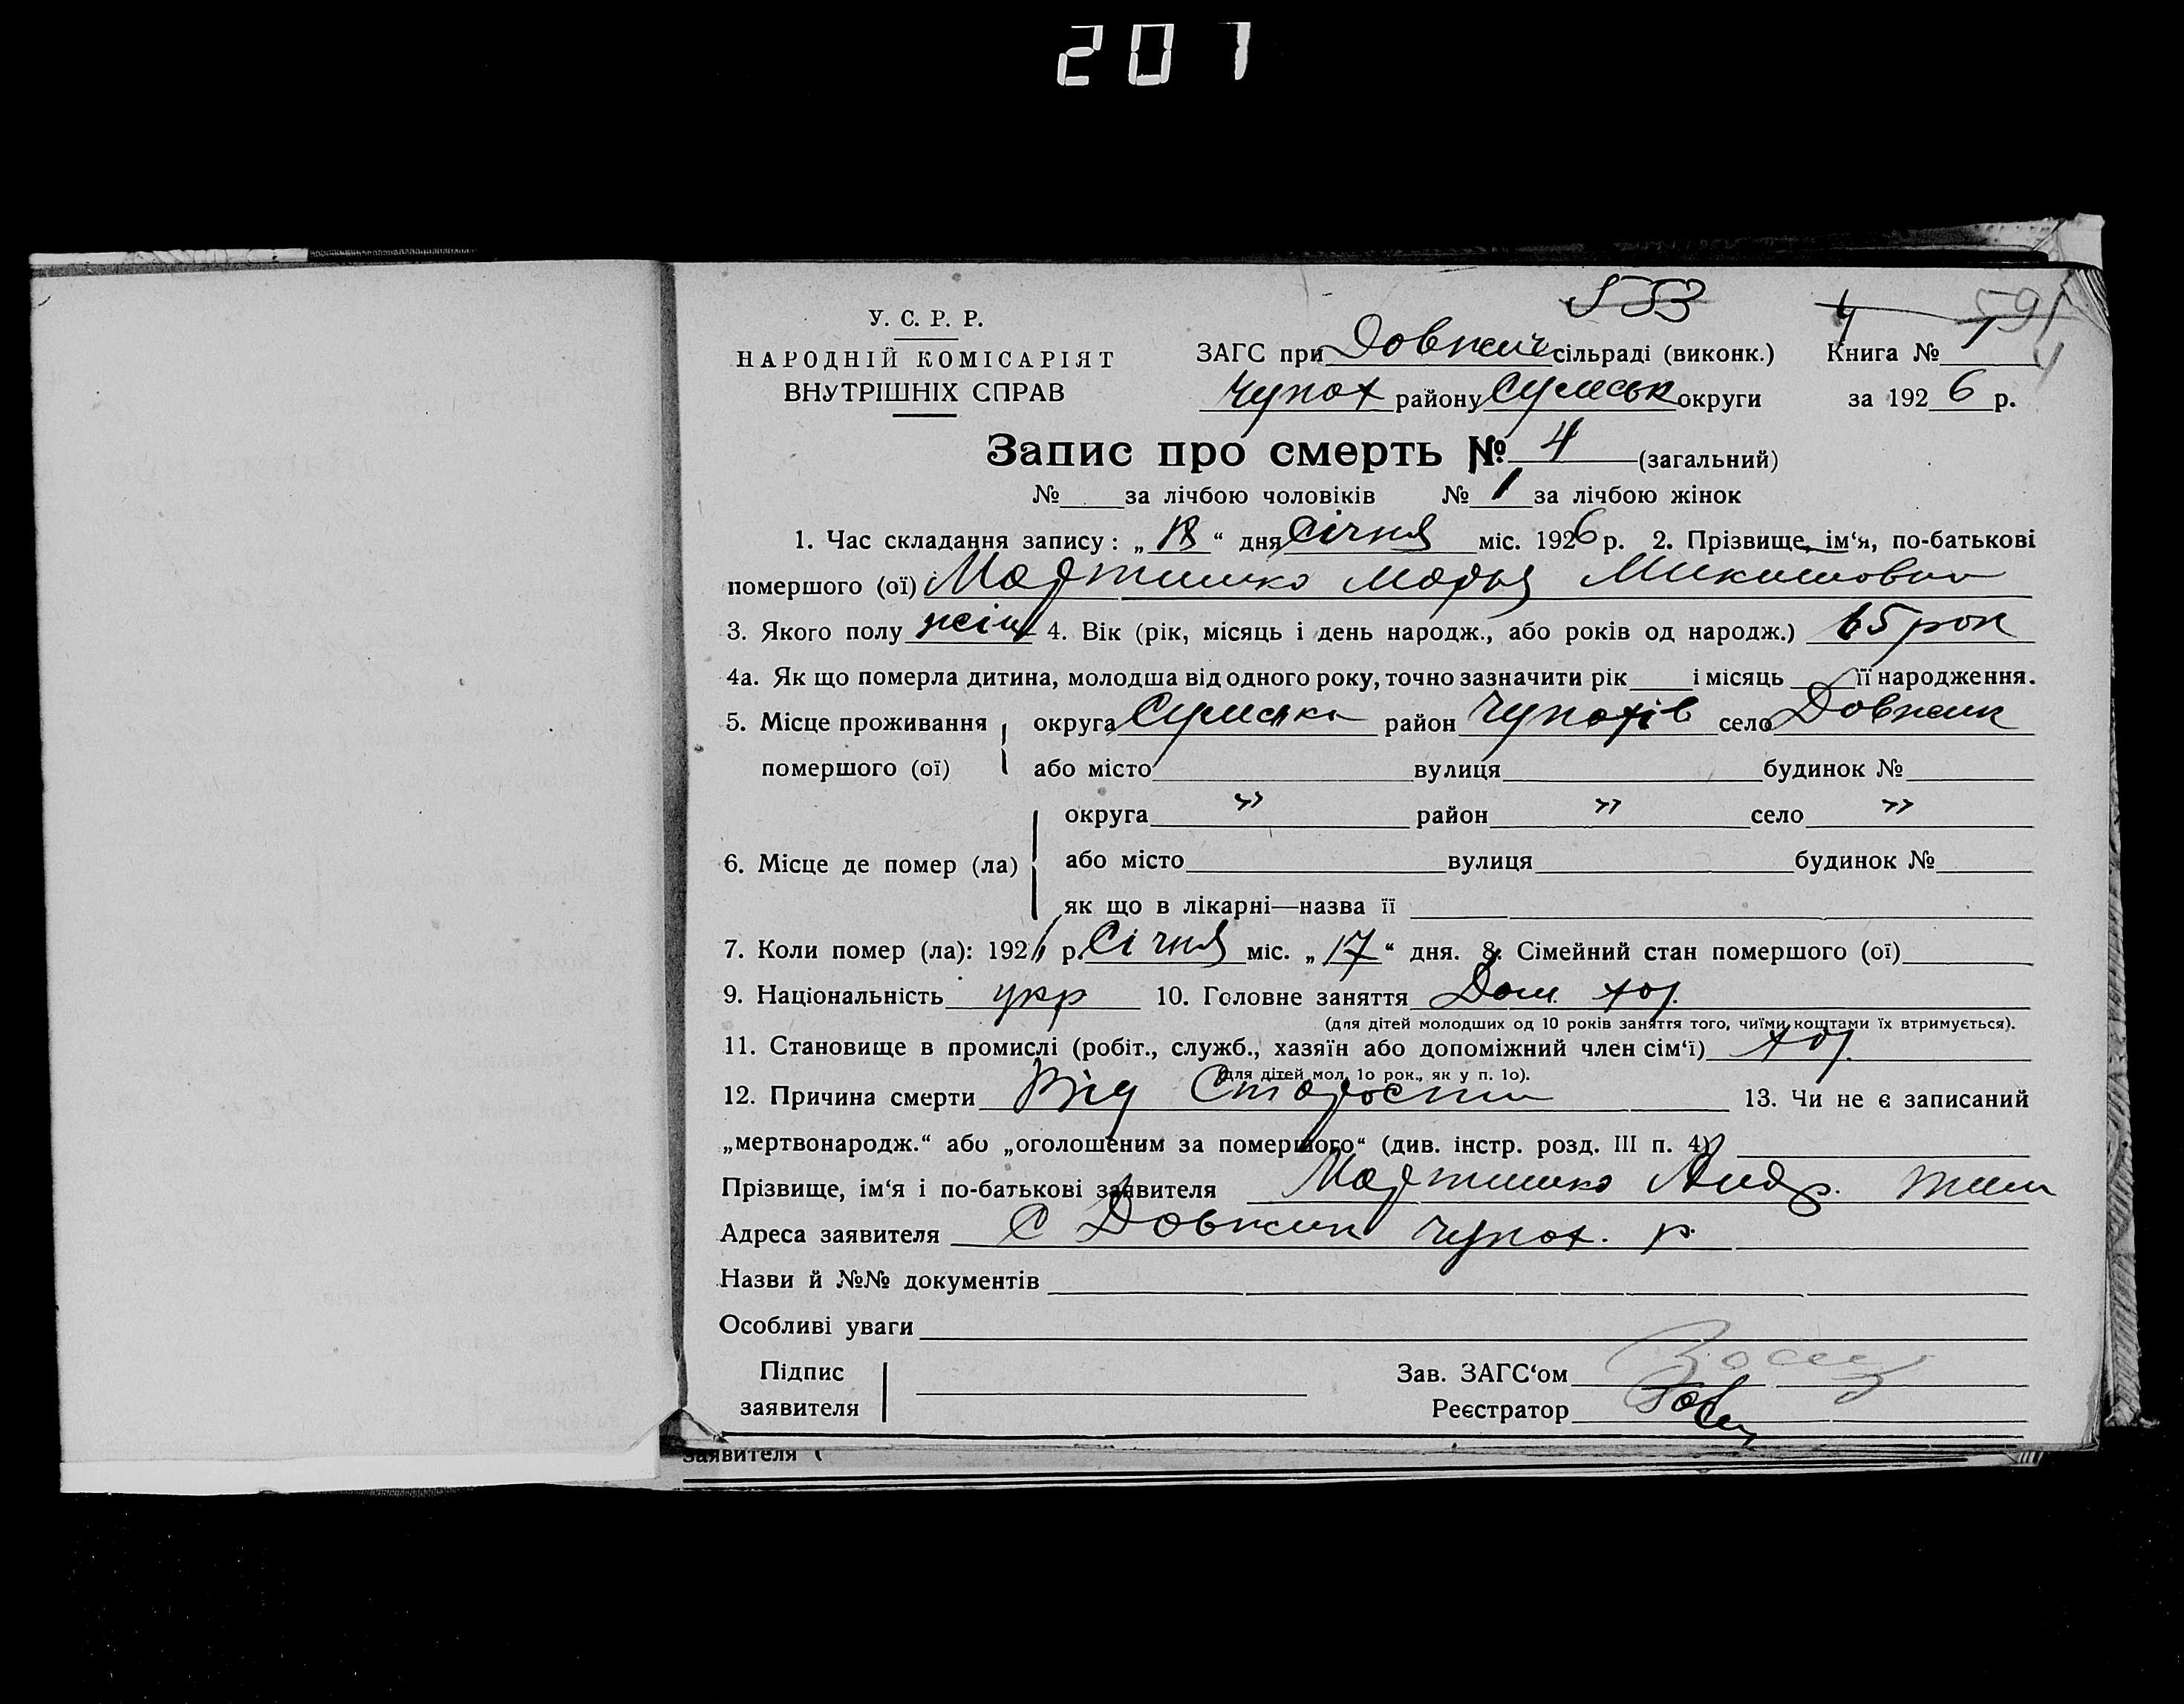 207
553
У. С. Р. Р.
НАРОДНІЙ КОМІСАРІЯТ
ВНУТРІШНІХ СПРАВ
ЗАГС при Довжич сільраді (виконк.) Книга № 1
Чупах району Сумськ округи за 1926 р.
Запис про смерть № 4 (загальний)
№ за лічбою чоловіків № 1 за лічбою жінок
1. Час складання запису: „18“ дня Січня міс. 1926 р. 2. Прізвище, ім‘я, по-батькові
помершого (ої) Мартишко Марья Микитовна
3. Якого полу жін 4. Вік (рік, місяць і день народж., або років од народж.) 65 рок
4а. Як що померла дитина, молодша від одного року, точно зазначити рік і місяць її народження.
5. Місце проживання помершого (ої) округа Сумська район Чупахів село Довжик
або місто вулиця будинок №
округа " район " село "
6. Місце де помер (ла) або місто вулиця будинок №
як що в лікарні—назва її
7. Коли помер (ла): 1926 р. Січня міс. „17“ дня. 8. Сімейний стан помершого (ої)
9. Національність укр 10. Головне заняття Дом. хоз.
(для дітей молодших од 10 років заняття того, чиїми коштами їх втримується).
11. Становище в промислі (робіт., служб., хазяїн або допоміжний член сім‘ї) хоз.
(для дітей мол. 1о рок., як у п. 1о).
12. Причина смерти Від Старости 13. Чи не є записаний
„мертвонародж.“ або „оголошеним за помершого“ (див. інстр. розд. III п. 4)
Прізвище, ім‘я і по-батькові заявителя Мартишко Андр.
Адреса заявителя С Довжик Чупах. р.
Назви й №№ документів
Особливі уваги
Підпис
заявителя
Зав. ЗАГС‘ом
Реєстратор
заявителя